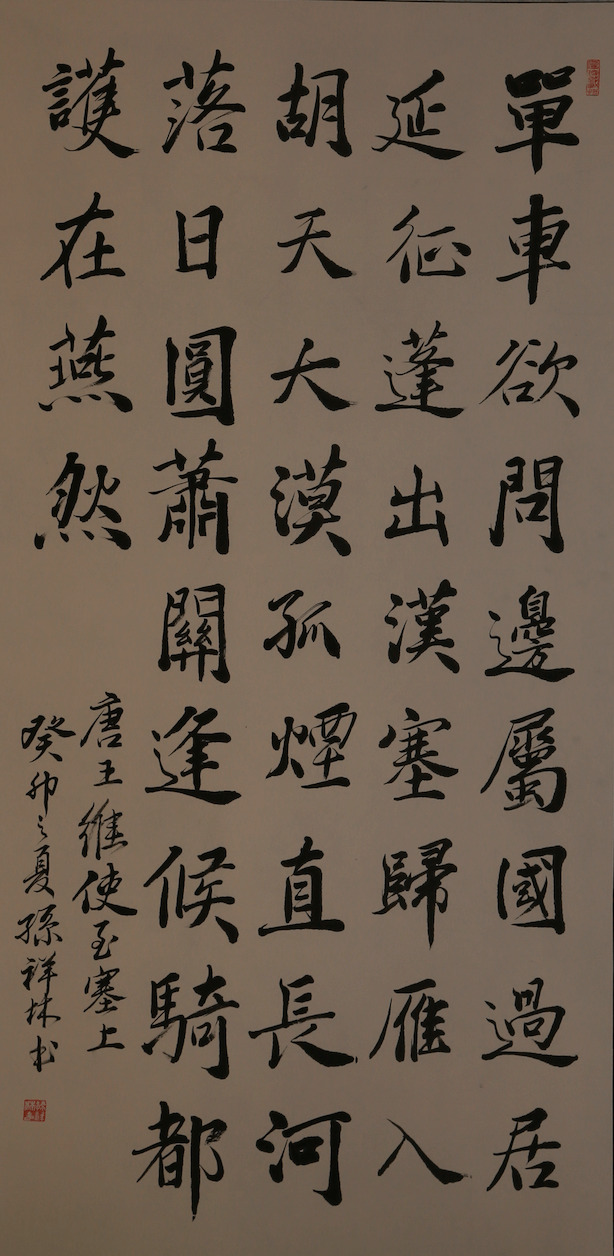 單車欲問邊屬國過居
延征蓬出漢塞歸雁入
胡天大漠孤煙直長河
落日圓蕭關逢候騎都
護在燕然
唐王維使至塞上
癸卯之夏孫祥林书